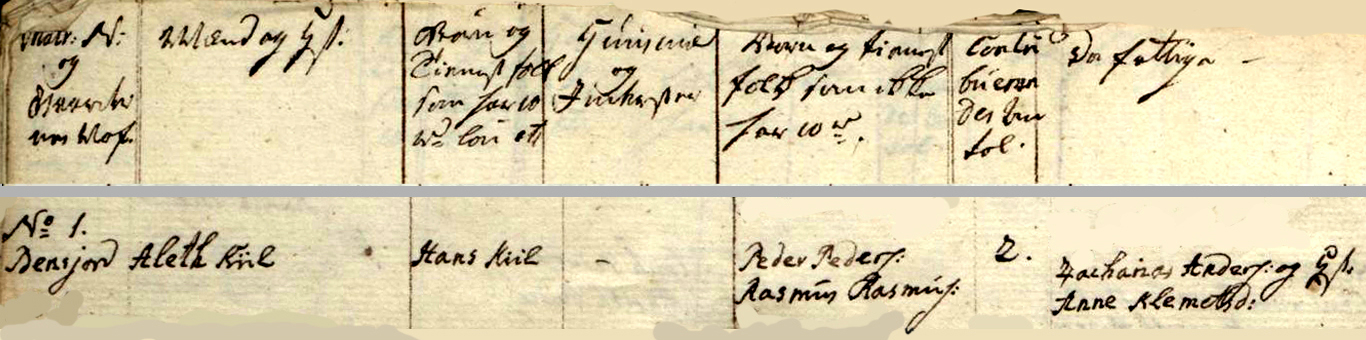 Matr: N:
og
Gaarde
nes Nof.
Mænd og Hst:
Børn og
Tienest folk
som har 10
rd løn ett
Huusmænd
og
Inderster
Børn og tienest
folk som ikke
har 10 rd.
Contri
bueren
des An
tal.
De fattige -
No 1.
Bensjord
Aleth Kiil
Hans Kiil
-
Peder Peders:
Rasmus Rasmus:
2.
Zacharias Anders: og Hst.
Anne Klemetsd: